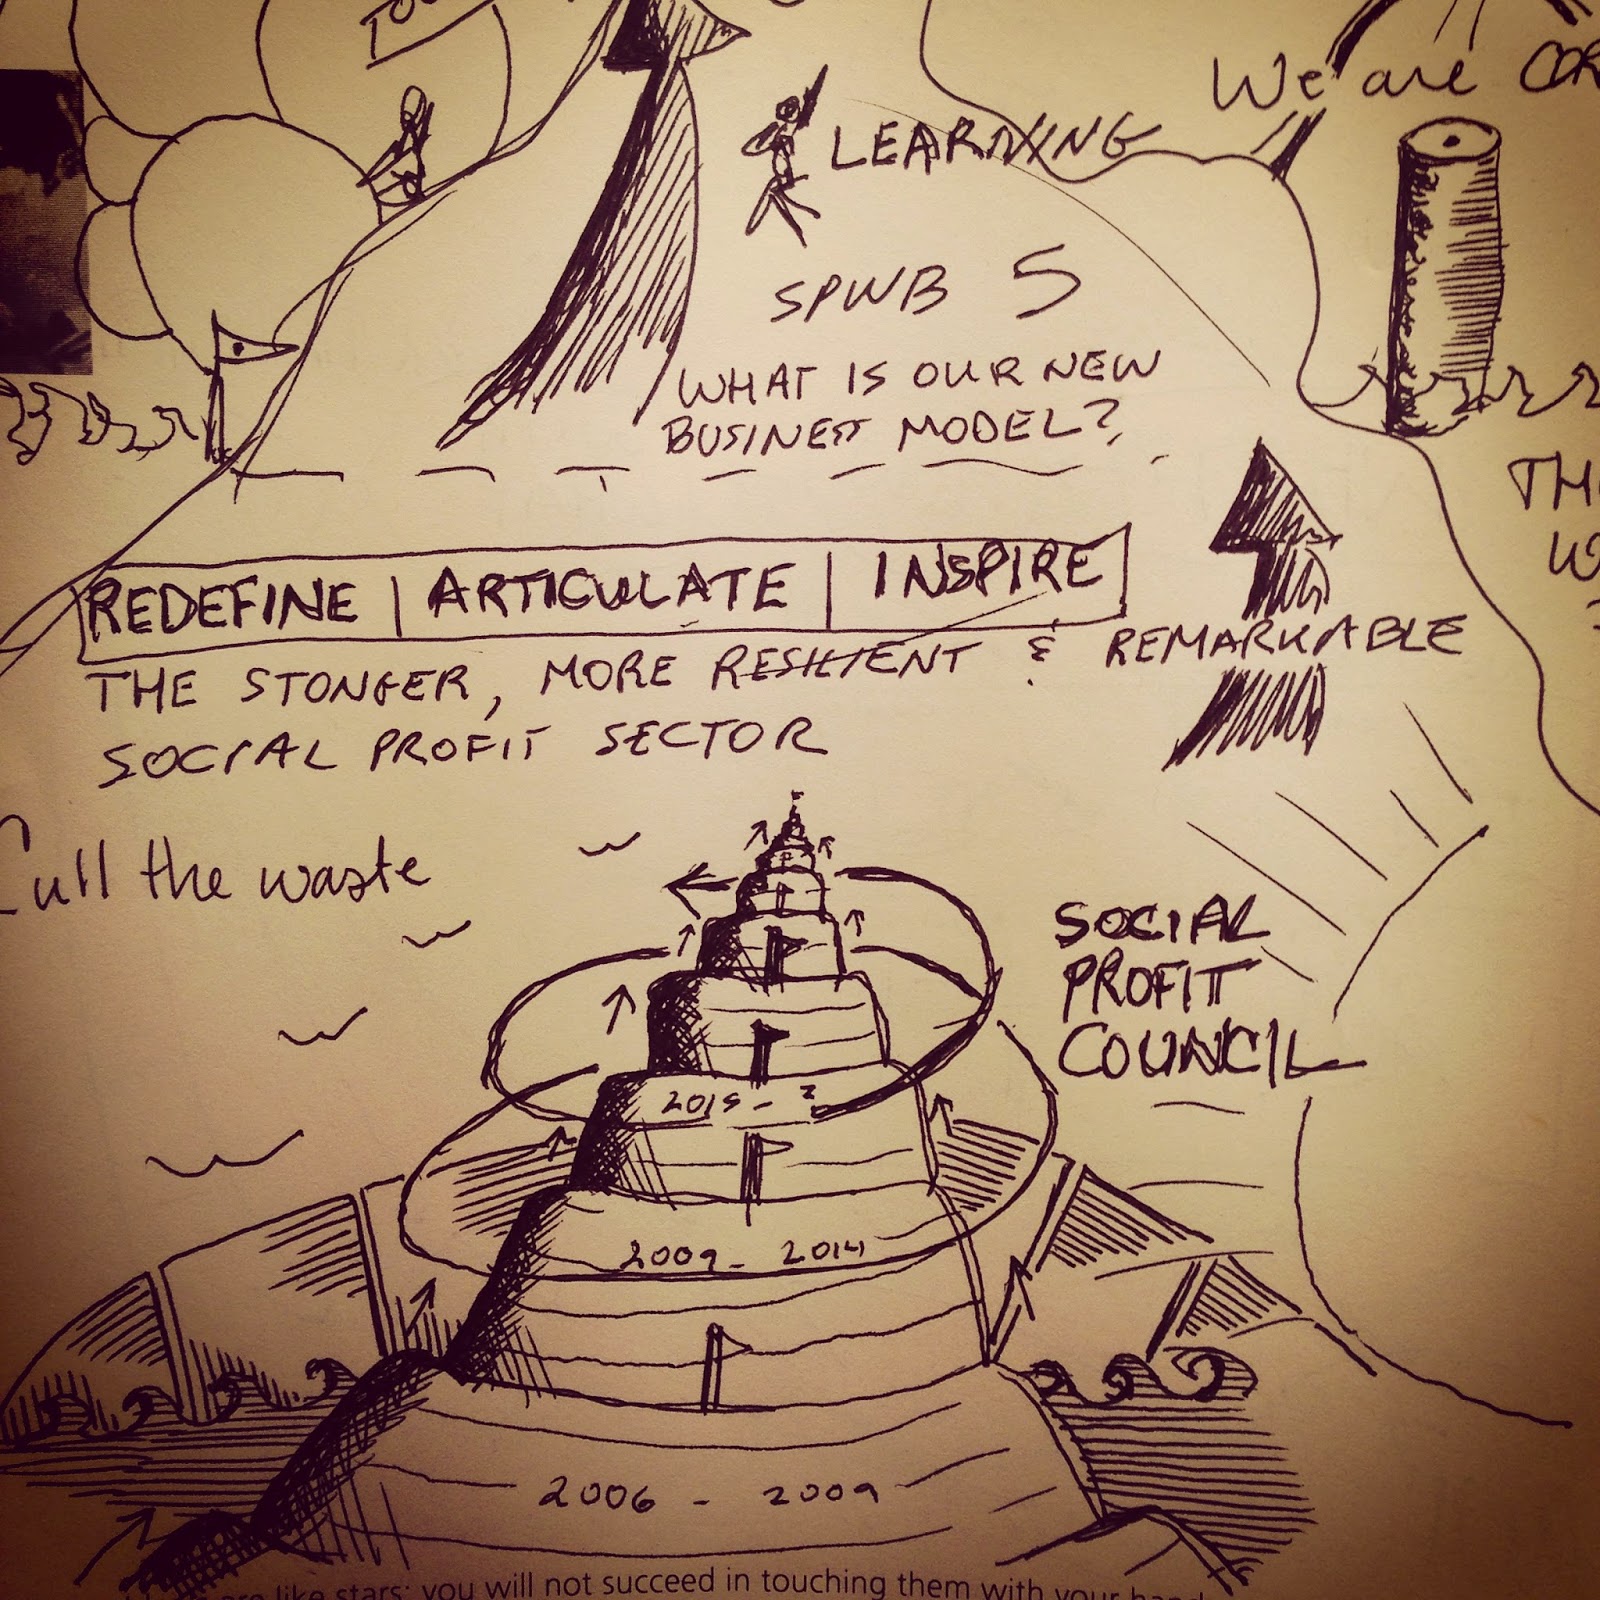 We are
LEARNING
SPWB 5
WHAT IS OUR NEW
BUSINESS MODEL?
REDEFINE | ARTICULATE | INSPIRE
THE STONGER, MORE RESILIENT & REMARKABLE
SOCIAL PROFIT SECTOR
Cull the waste
SOCIAL
PROFIT
COUNCIL
2015 - ?
2009 - 2014
2006 - 2009
are like stars: you will not succeed in touching them with your